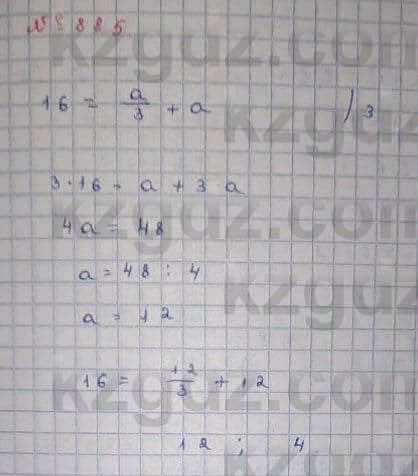 № 885
16 = a/3 + a | 3
3·16 = a + 3 a
4a = 48
a = 48 : 4
a = 12
16 = 12/3 + 12
12 ; 4
kzguz.com